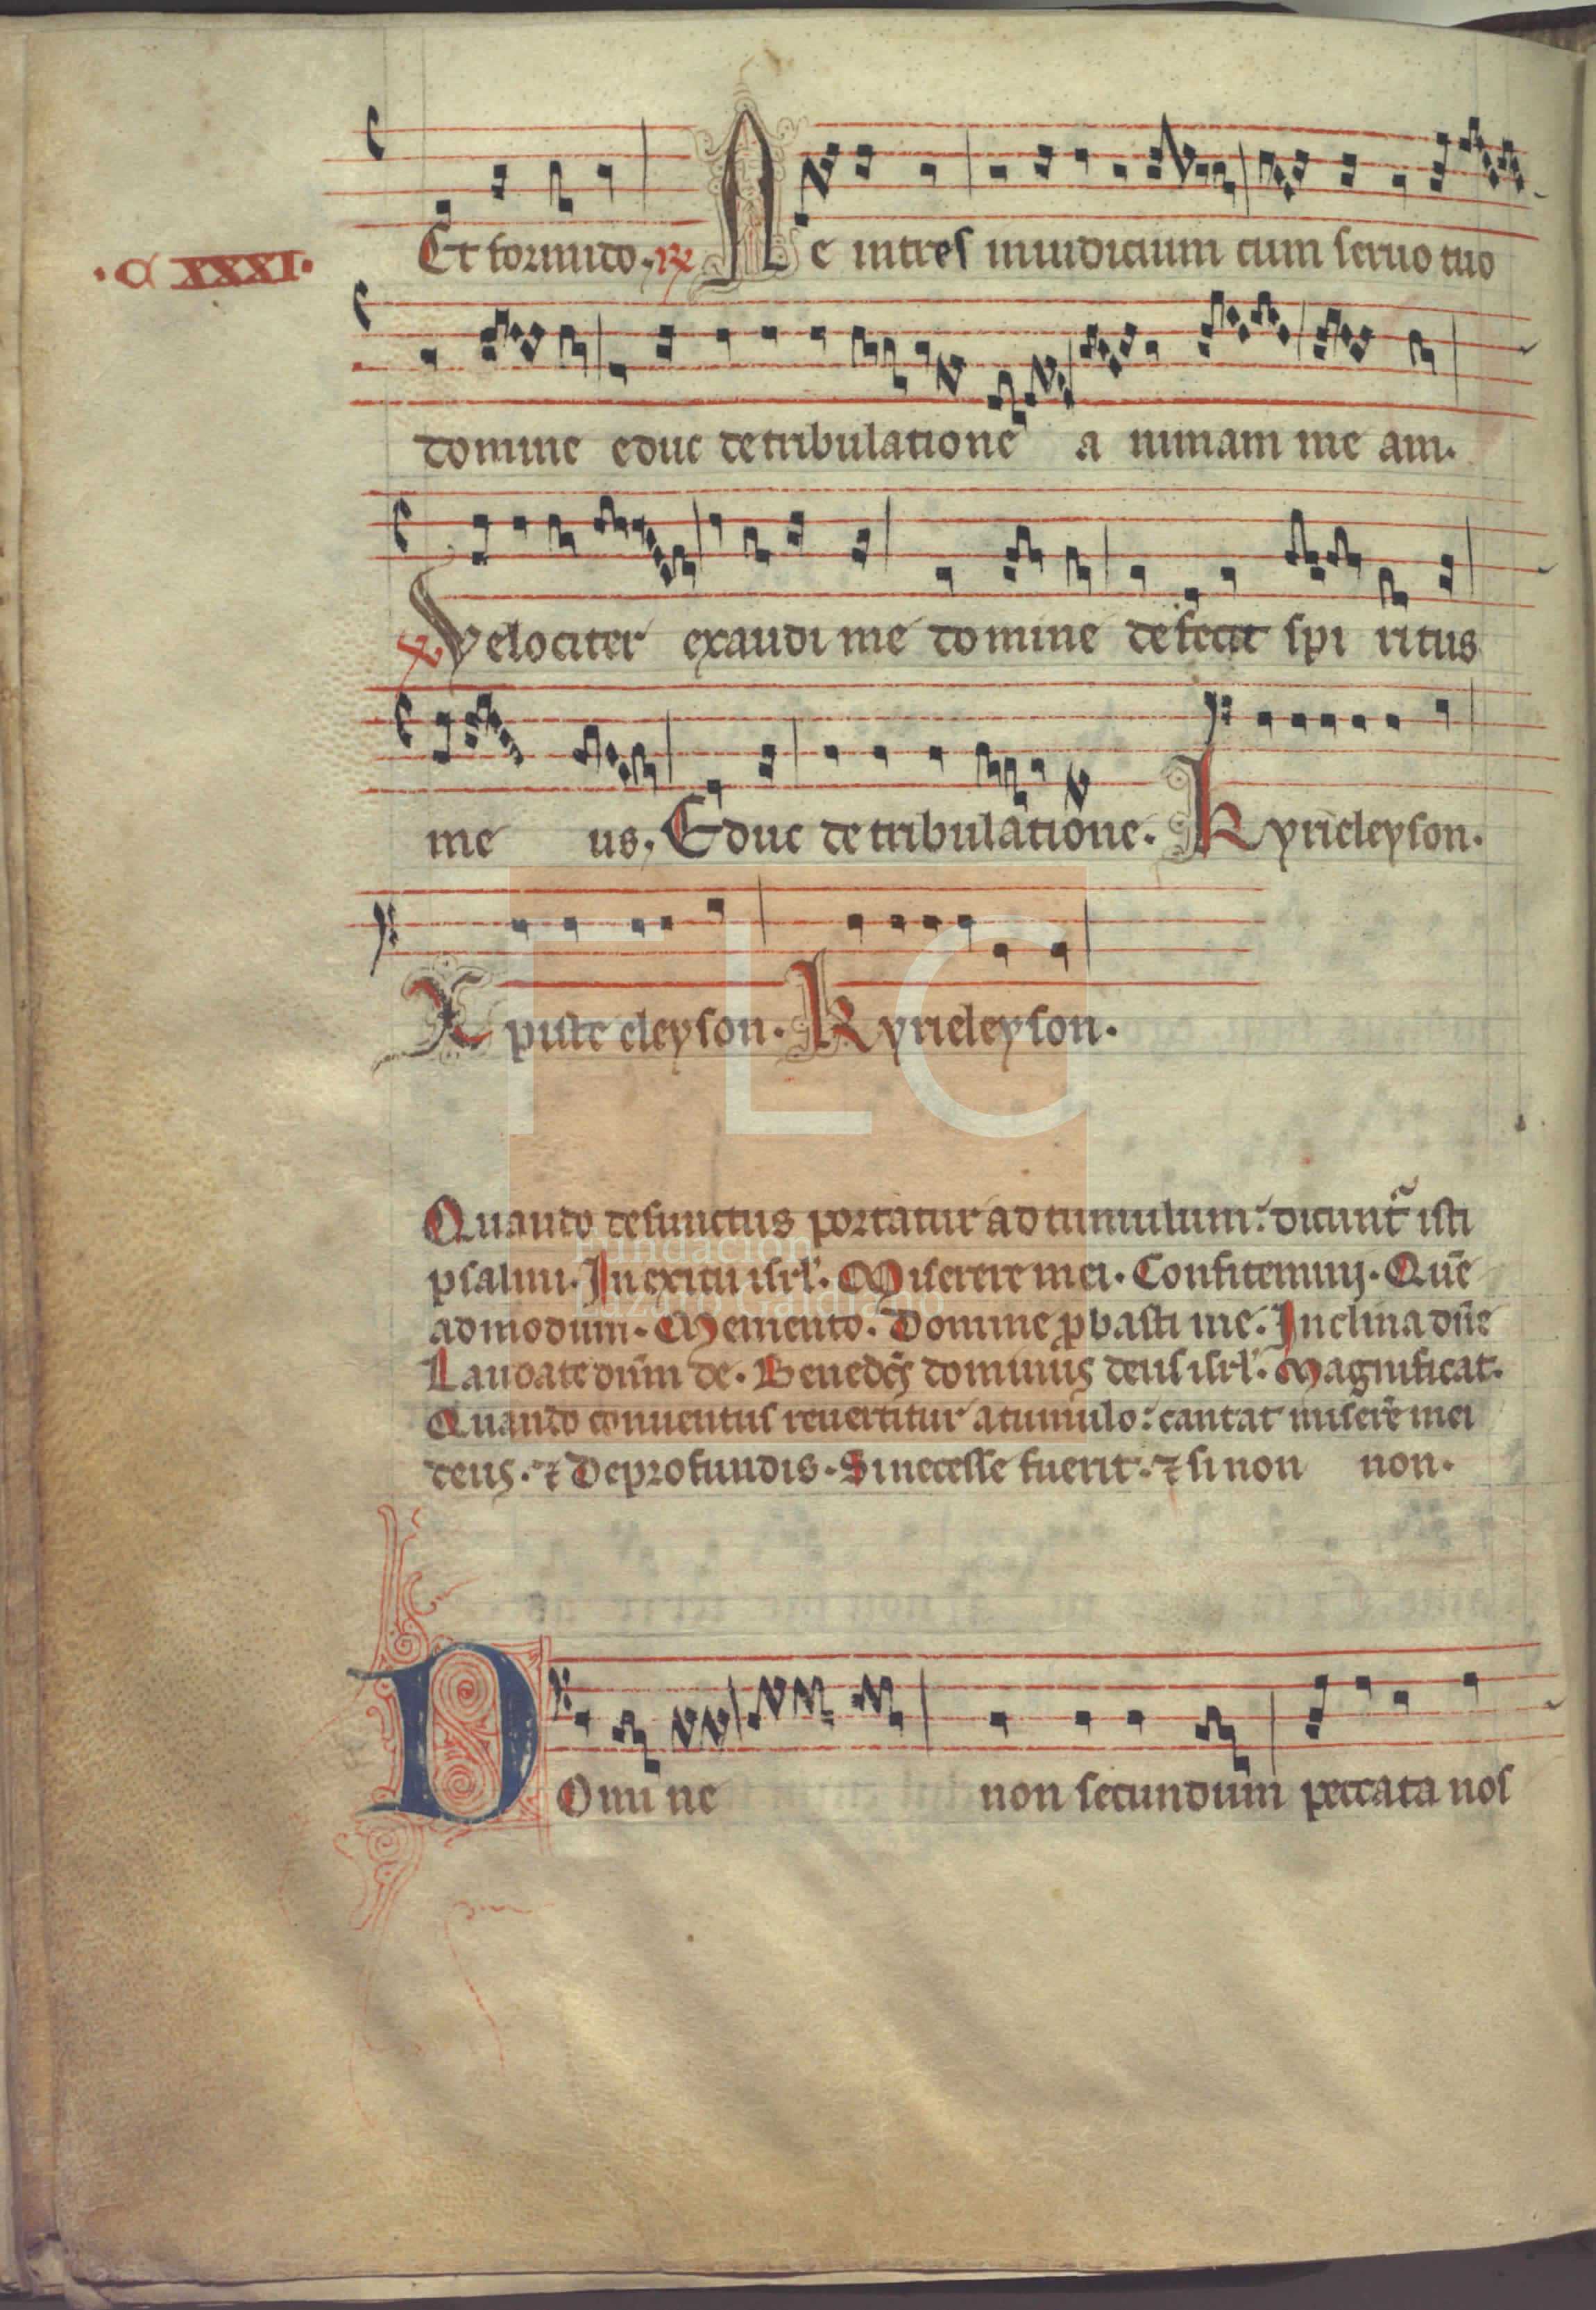 Et formido. ℟ Ne intres in iudicium cum seruo tuo
.C XXXI.
domine educ de tribulatione a nimam me am.
℣ Velociter exaudi me domine defecit spi ritus
me us. Educ de tribulatione. Kyrieleyson.
Xpiste eleyson. Kyrieleyson.
FLG
Quando defunctus portatur ad tumulum: dicunt᷑ isti
psalmi. In exitu isrl'. Miserere mei. Confitemini. Quē
admodum. Memento. Domine ꝓbasti me. Inclina dn̄e
Laudate dn̄m de. Benedc̄s dominus deus isrl'. Magnificat.
Fundación
Lázaro Galdiano
Quando conuentus reuertitur a tumulo: cantat miserē mei
deus. ⁊ De profundis. Si necesse fuerit. ⁊ si non non.
Domi ne non secundum peccata nos